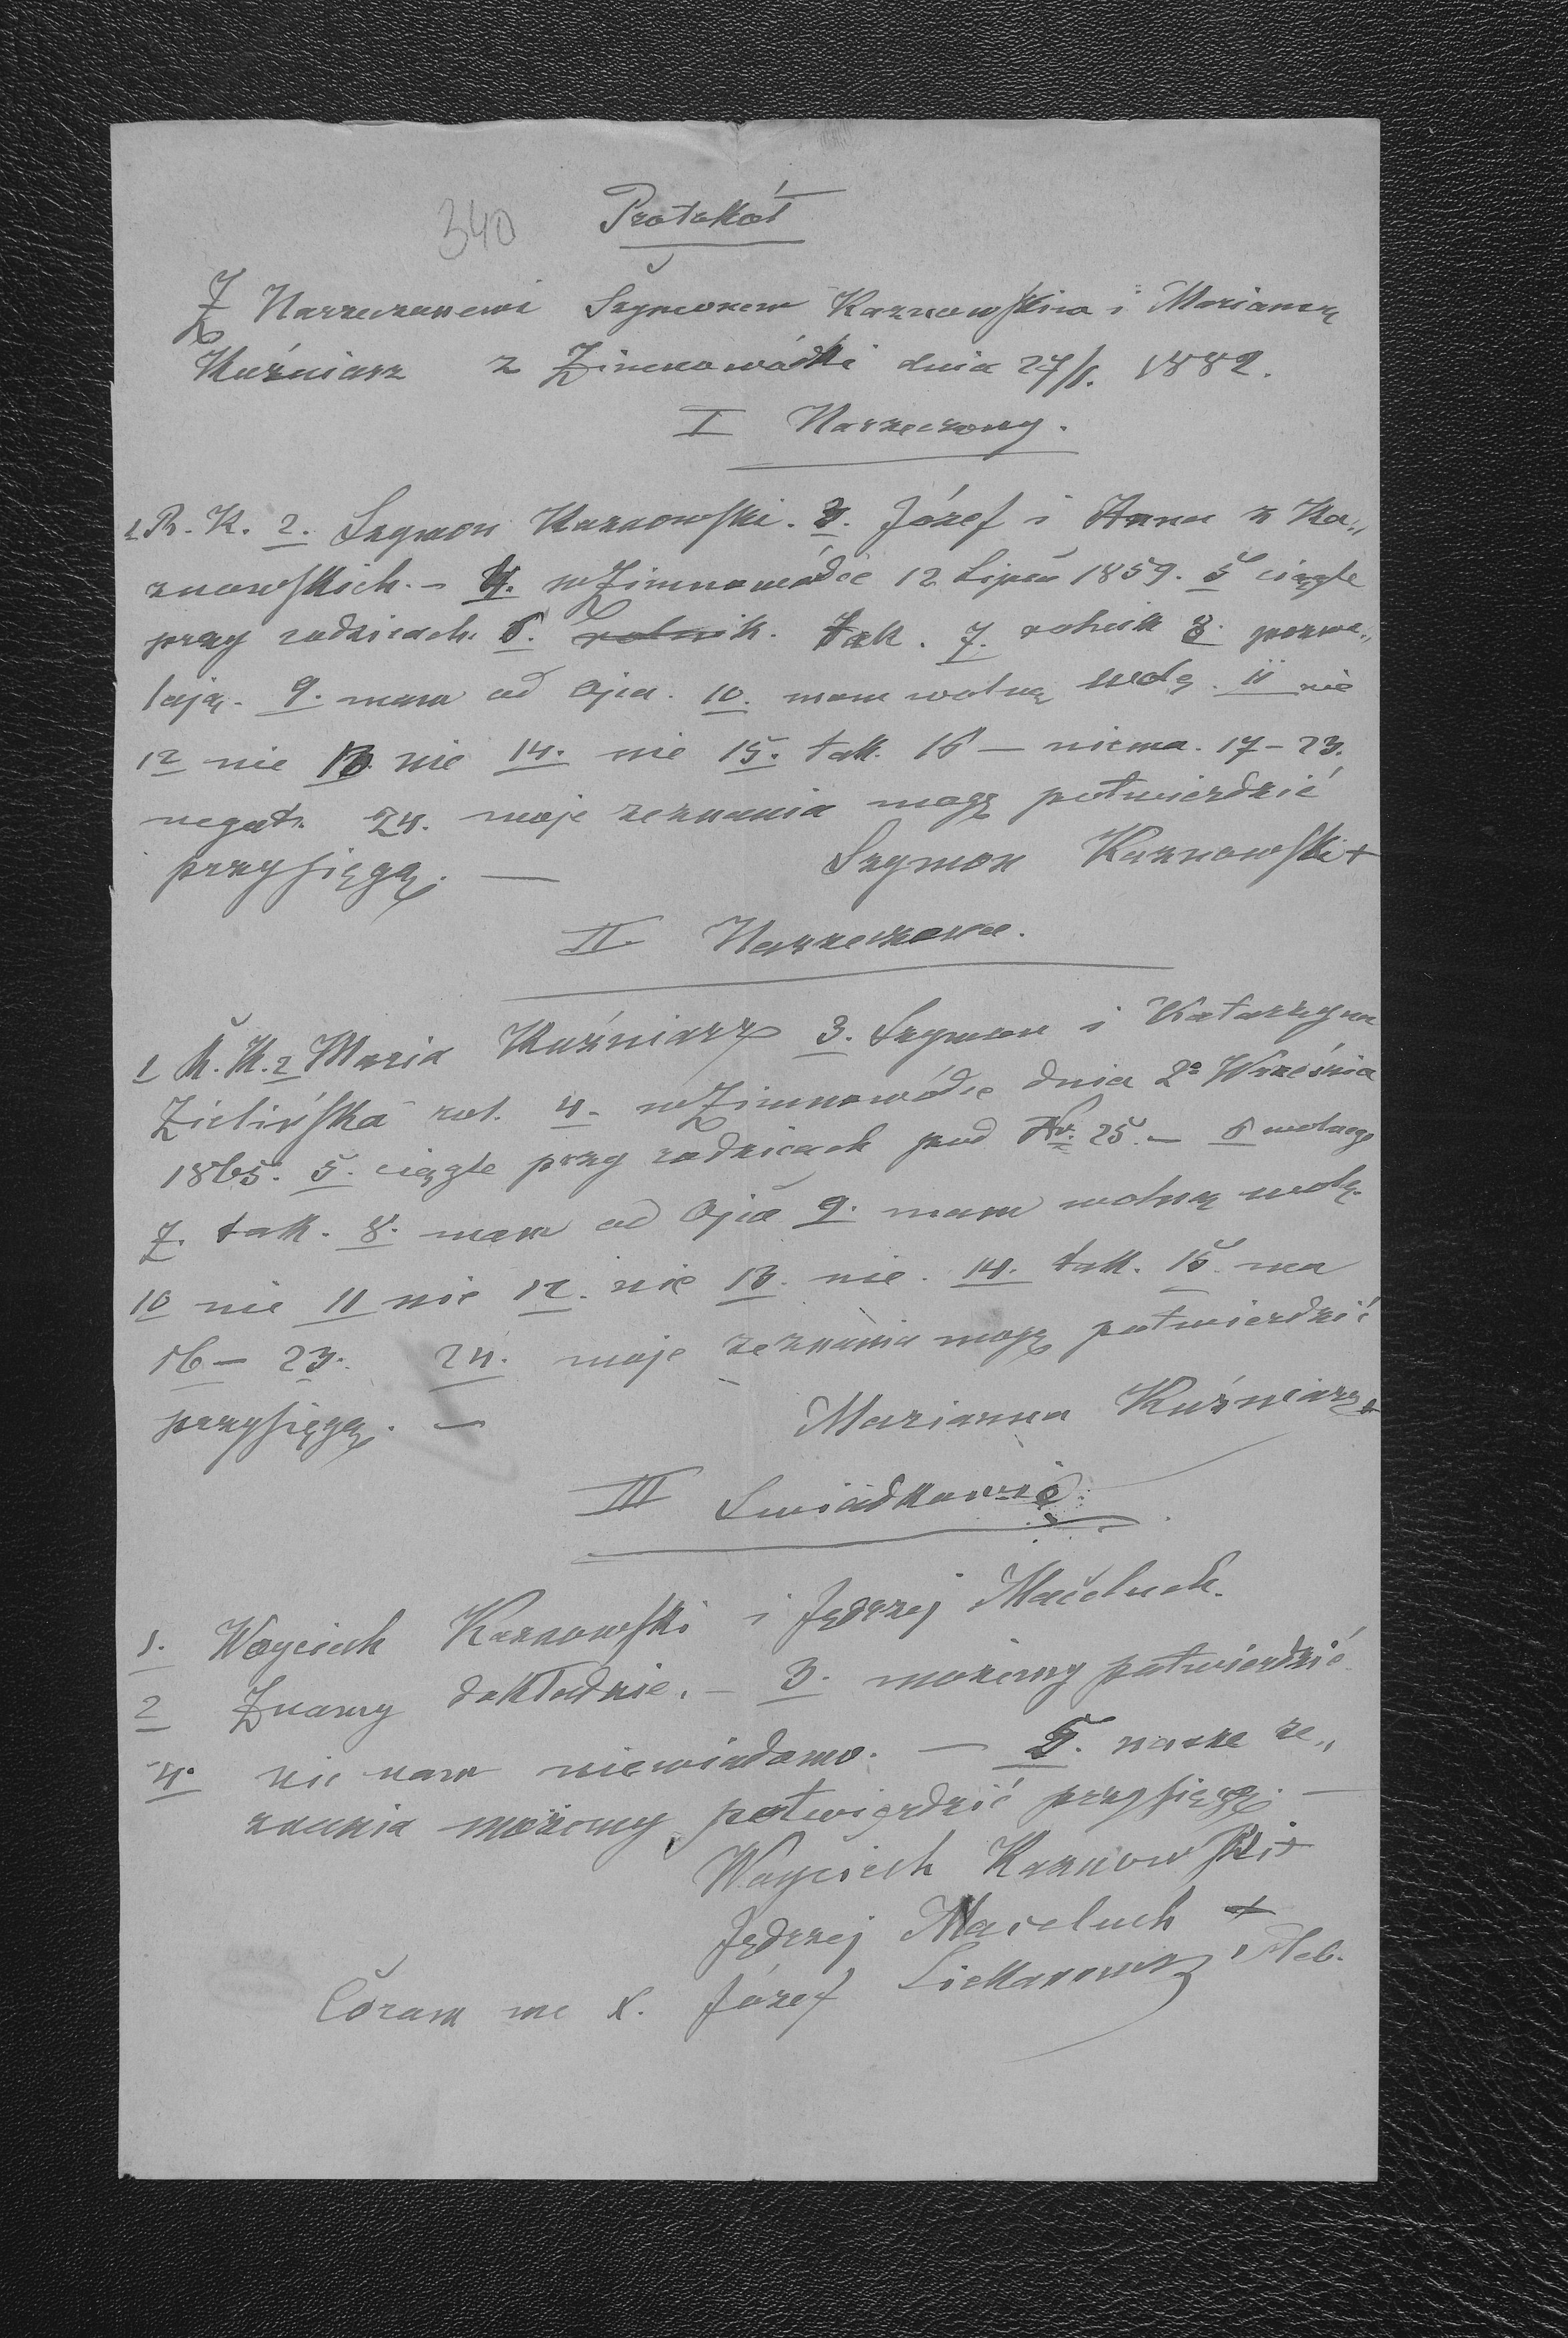 340 Protokół
Z Narzeczonemi Szymonem Kaznowskim i Marianną
Kuźniarz z Zimnowódki dnia 27/1. 1882.
I Narzeczony.
1 R. K. 2. Szymon Kaznowski. 3. Józef i Anna z Ka„
znowskich. – 4. w Zimnowódce 12 Lipca 1859. 5 ciągle
przy rodzicach. 6. rolnik. tak. 7. rolnik 8. pozwa„
lają. 9. mam od Ojca. 10. mam wolną wolę. 11 nie
12 nie 13. nie 14. nie 15. tak. 16 – niema. 17 – 23.
negat. 24. moje zeznania mogę potwierdzić
przysięgą. — Szymon Kaznowski +
II Narzeczona.
1 R. K. 2 Maria Kuźniarz 3. Szymon i Katarzyna
Zielińska rol. 4. w Zimnowódce dnia 2º Września
1865. 5. ciągle przy rodzicach pod Nr. 25. – 6 wolnego
7. tak. 8. mam od Ojca 9. mam wolną wolę.
10 nie 11 nie 12. nie 13. nie. 14. tak. 15. ma
16 – 23. 24. moje zeznania mogę potwierdzić
przysięgą. — Marianna Kuźniarz +
III Swiadkowie.
1. Woyciech Kaznowski i Jędrzej Maceluch.
2 Znamy dokładnie. – 3. możemy potwierdzić.
4. nic nam niewiadomo. — 5. nasze ze„
znania możemy potwierdzić przysięgą. —
Woyciech Kaznowski +
Jędrzej Maceluch +
Coram me X. Józef Pleb.